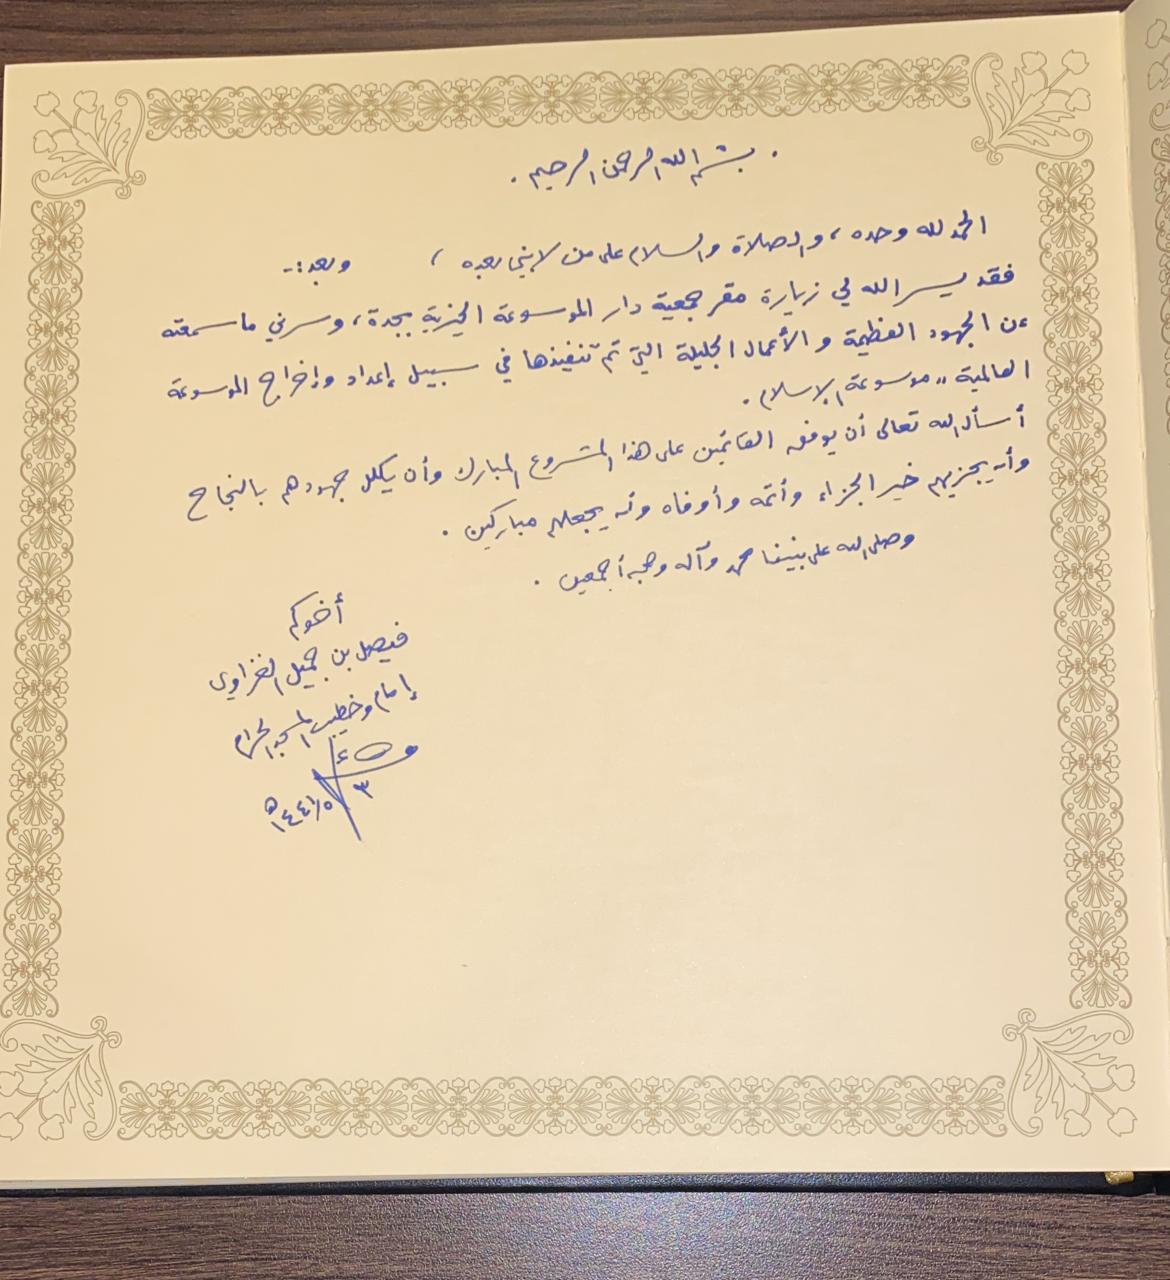 . بسم الله الرحمن الرحيم .
الحمد لله وحده ، والصلاة والسلام على من لا نبي بعده ، وبعد :-
فقد يسر الله لي زيارة مقر جمعية دار الموسوعة الخيرية بجدة ، وسرني ما سمعته
عن الجهود العظيمة والأعمال الجليلة التي تم تنفيذها في سبيل إعداد وإخراج الموسوعة
العالمية ,, موسوعة الإسلام .
أسأل الله تعالى أن يوفق القائمين على هذا المشروع المبارك وأن يكلل جهودهم بالنجاح
وأن يجزيهم خير الجزاء وأتمه وأوفاه وأن يجعلهم مباركين .
وصلى الله على نبينا محمد وآله وصحبه أجمعين .
أخوكم
فيصل بن جميل الغزاوي
إمام وخطيب المسجد الحرام
١٤٤١/٥/٣ هـ